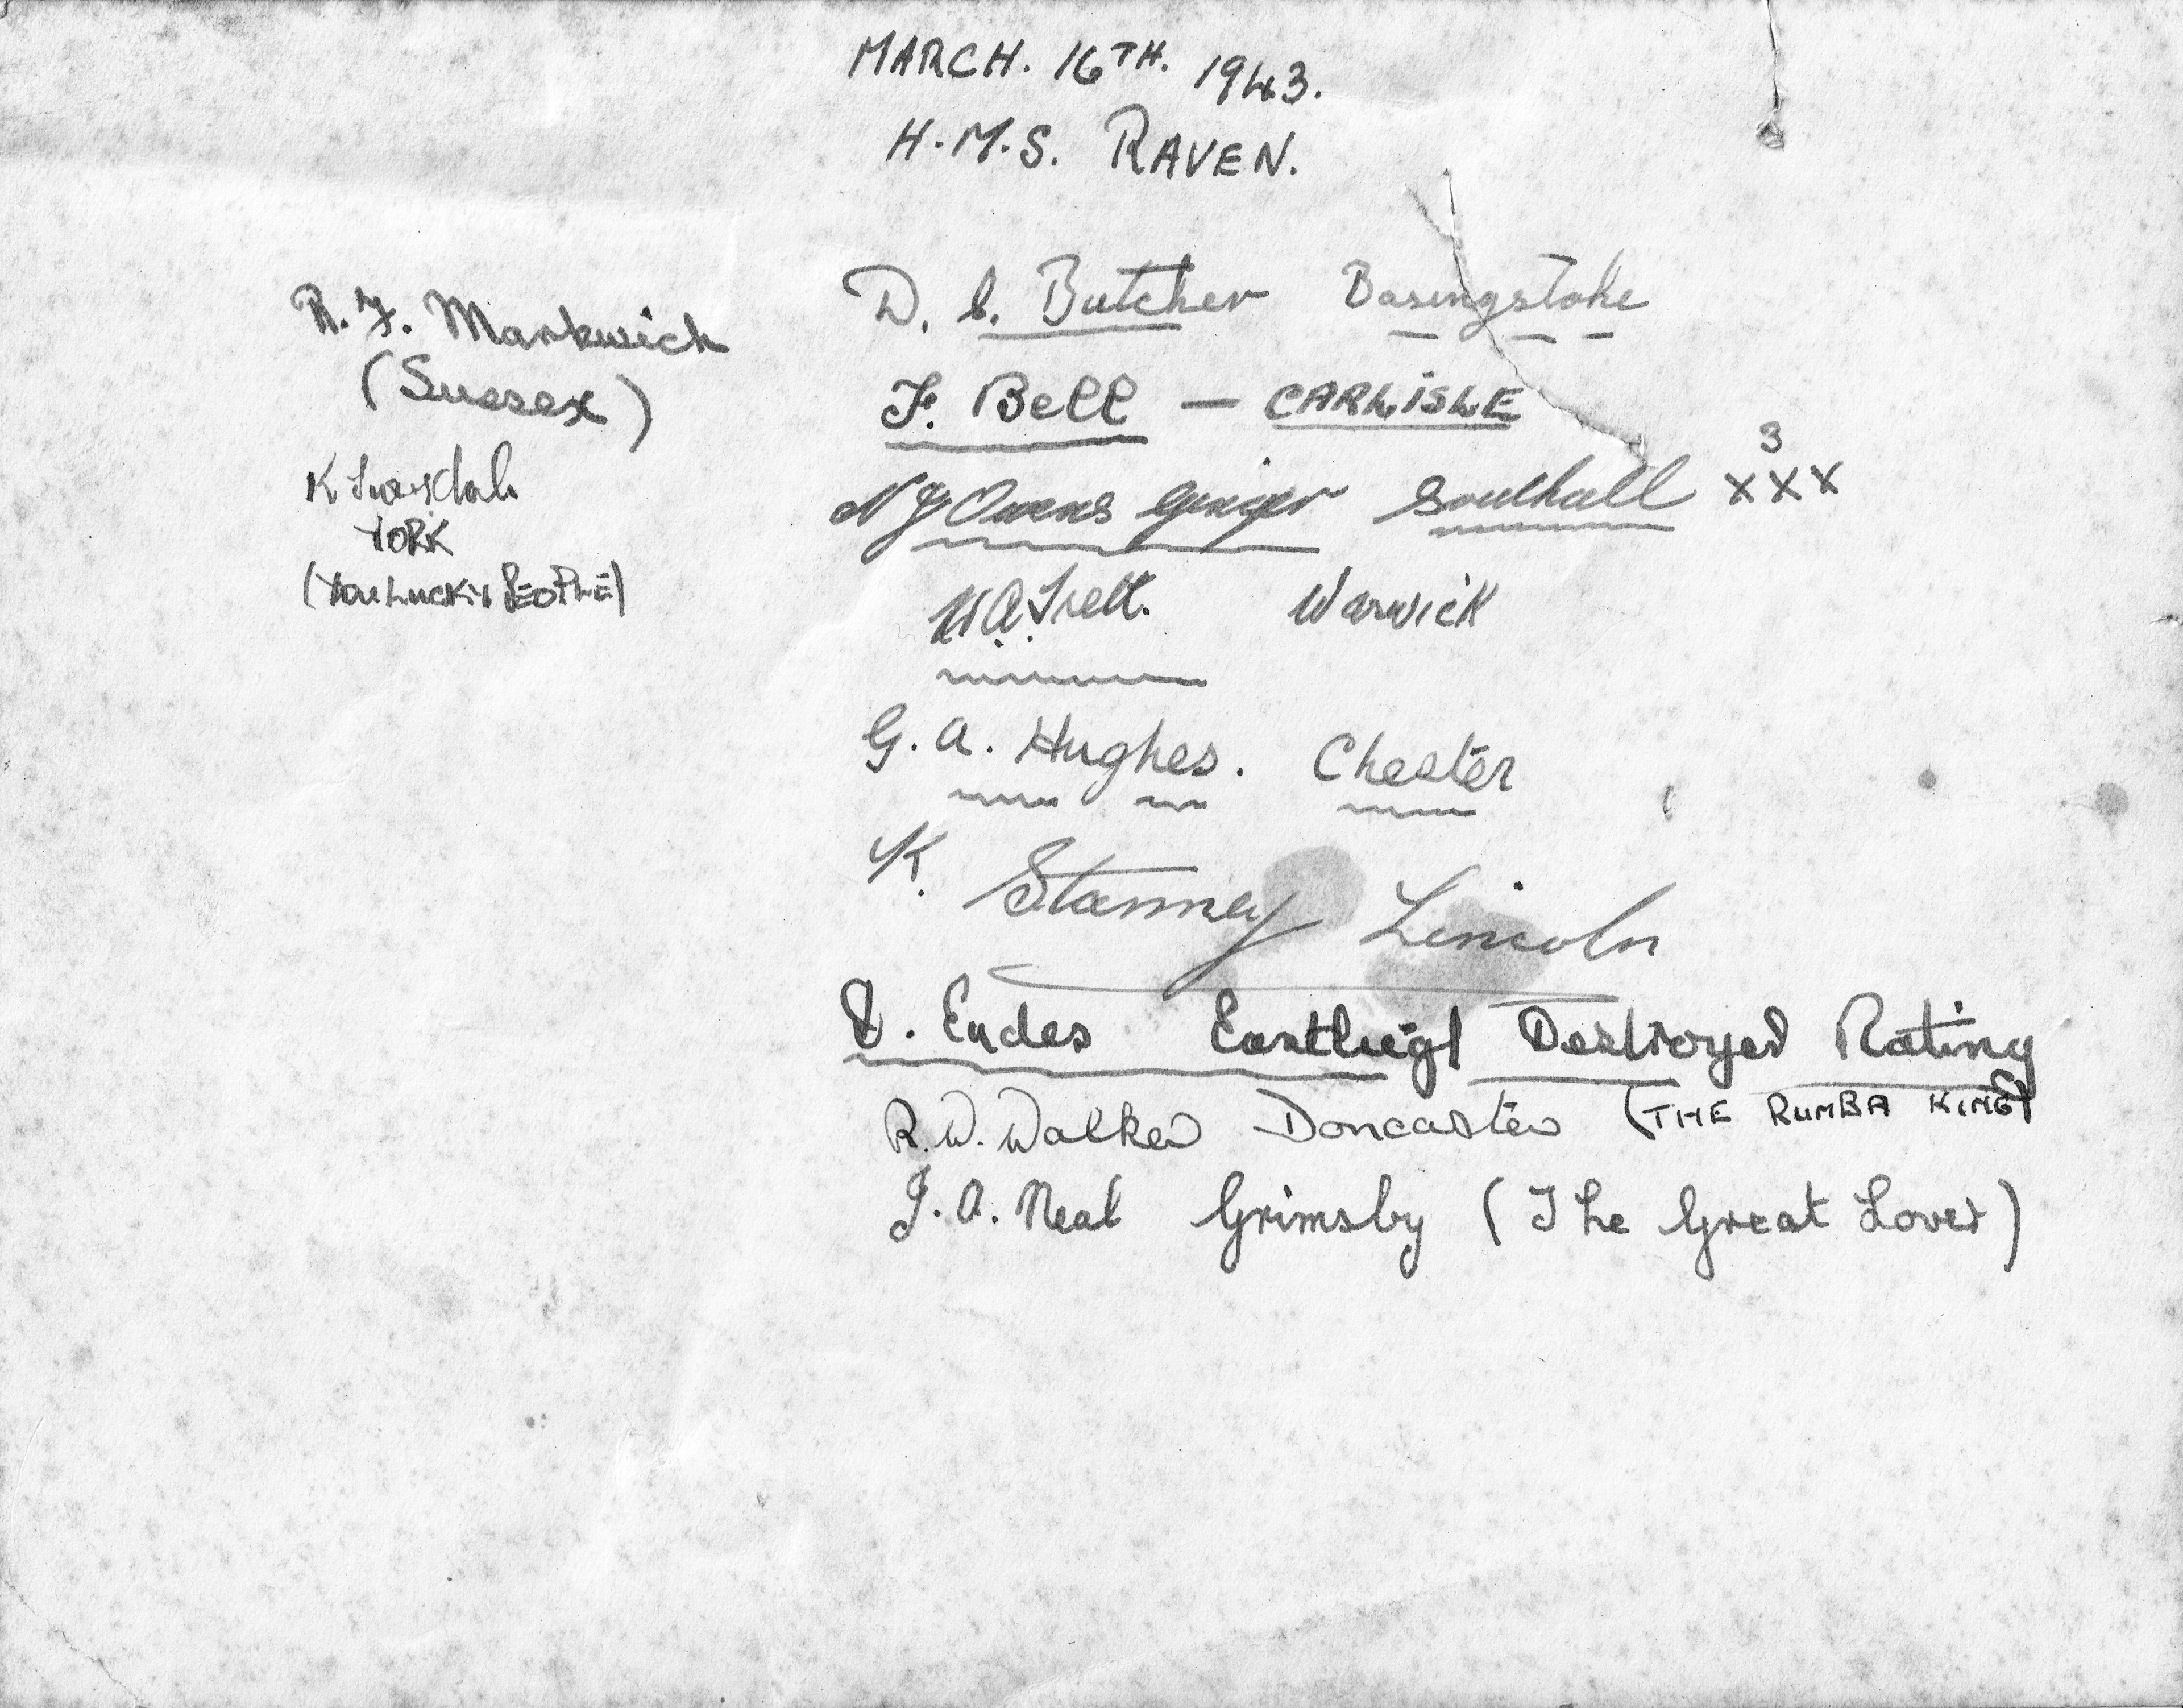 MARCH. 16TH. 1943.
H.M.S. RAVEN.
R. F. Markwich
(Sussex)
K
YORK
(YOU LUCKY PEOPLE)
D. C. Butcher Basingstoke
F. Bell — CARLISLE
N J Owens Ginger Southall xxx 3
A. Warwick
G. A. Hughes. Chester
K. Stanney Lincoln
Eades Eastleigh Destroyer Rating
R. W. Walker Doncaster (THE RUMBA KING)
J. A. Neal Grimsby (The Great Lover)